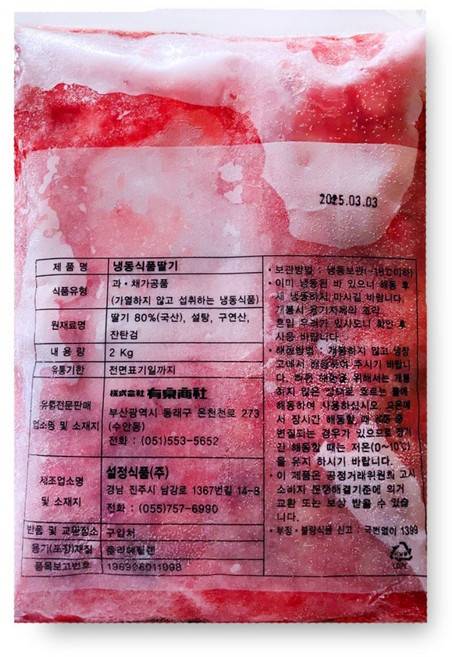 2025.03.03
제 품 명 냉동식품딸기
식품유형 과·채가공품
(가열하지 않고 섭취하는 냉동식품)
원재료명 딸기 80%(국산), 설탕, 구연산,
잔탄검
내 용 량 2 Kg
유통기한 전면표기일까지
유통전문판매
업소명 및 소재지
株式会社 有泉商社
부산광역시 동래구 온천천로 273
(수안동)
전화 : (051)553-5652
제조업소명
및 소재지
설정식품(주)
경남 진주시 남강로 1367번길 14-8
전화 : (055)757-6990
반품 및 교환장소 구입처
용기(포장)재질 폴리에틸렌
품목보고번호
·보관방법 : 냉동보관(-18℃이하)
·이미 냉동된 바 있으니 해동 후
재 냉동하지 마시길 바랍니다.
·개봉시 용기자체의
혼입 우려가 있사오니 확인 후
사용 바랍니다.
·해동방법 : 개봉하지 않고 냉장
고에서 해동하여 주시기 바랍니
다. 빠른 해동을 위해서는 개봉
하지 않은 상태로 흐르는 물에
해동하여 사용하십시오. 고온에
서 장시간 해동할 때
변질되는 경우가 있으므로 장기
간 해동할 때는 저온(0~10℃)
을 유지 하시기 바랍니다.
·이 제품은 공정거래위원회 고시
소비자 분쟁해결기준에 의거
교환 또는 보상 받을 수 있습
니다.
·부정·불량식품 신고 : 국번없이 1399